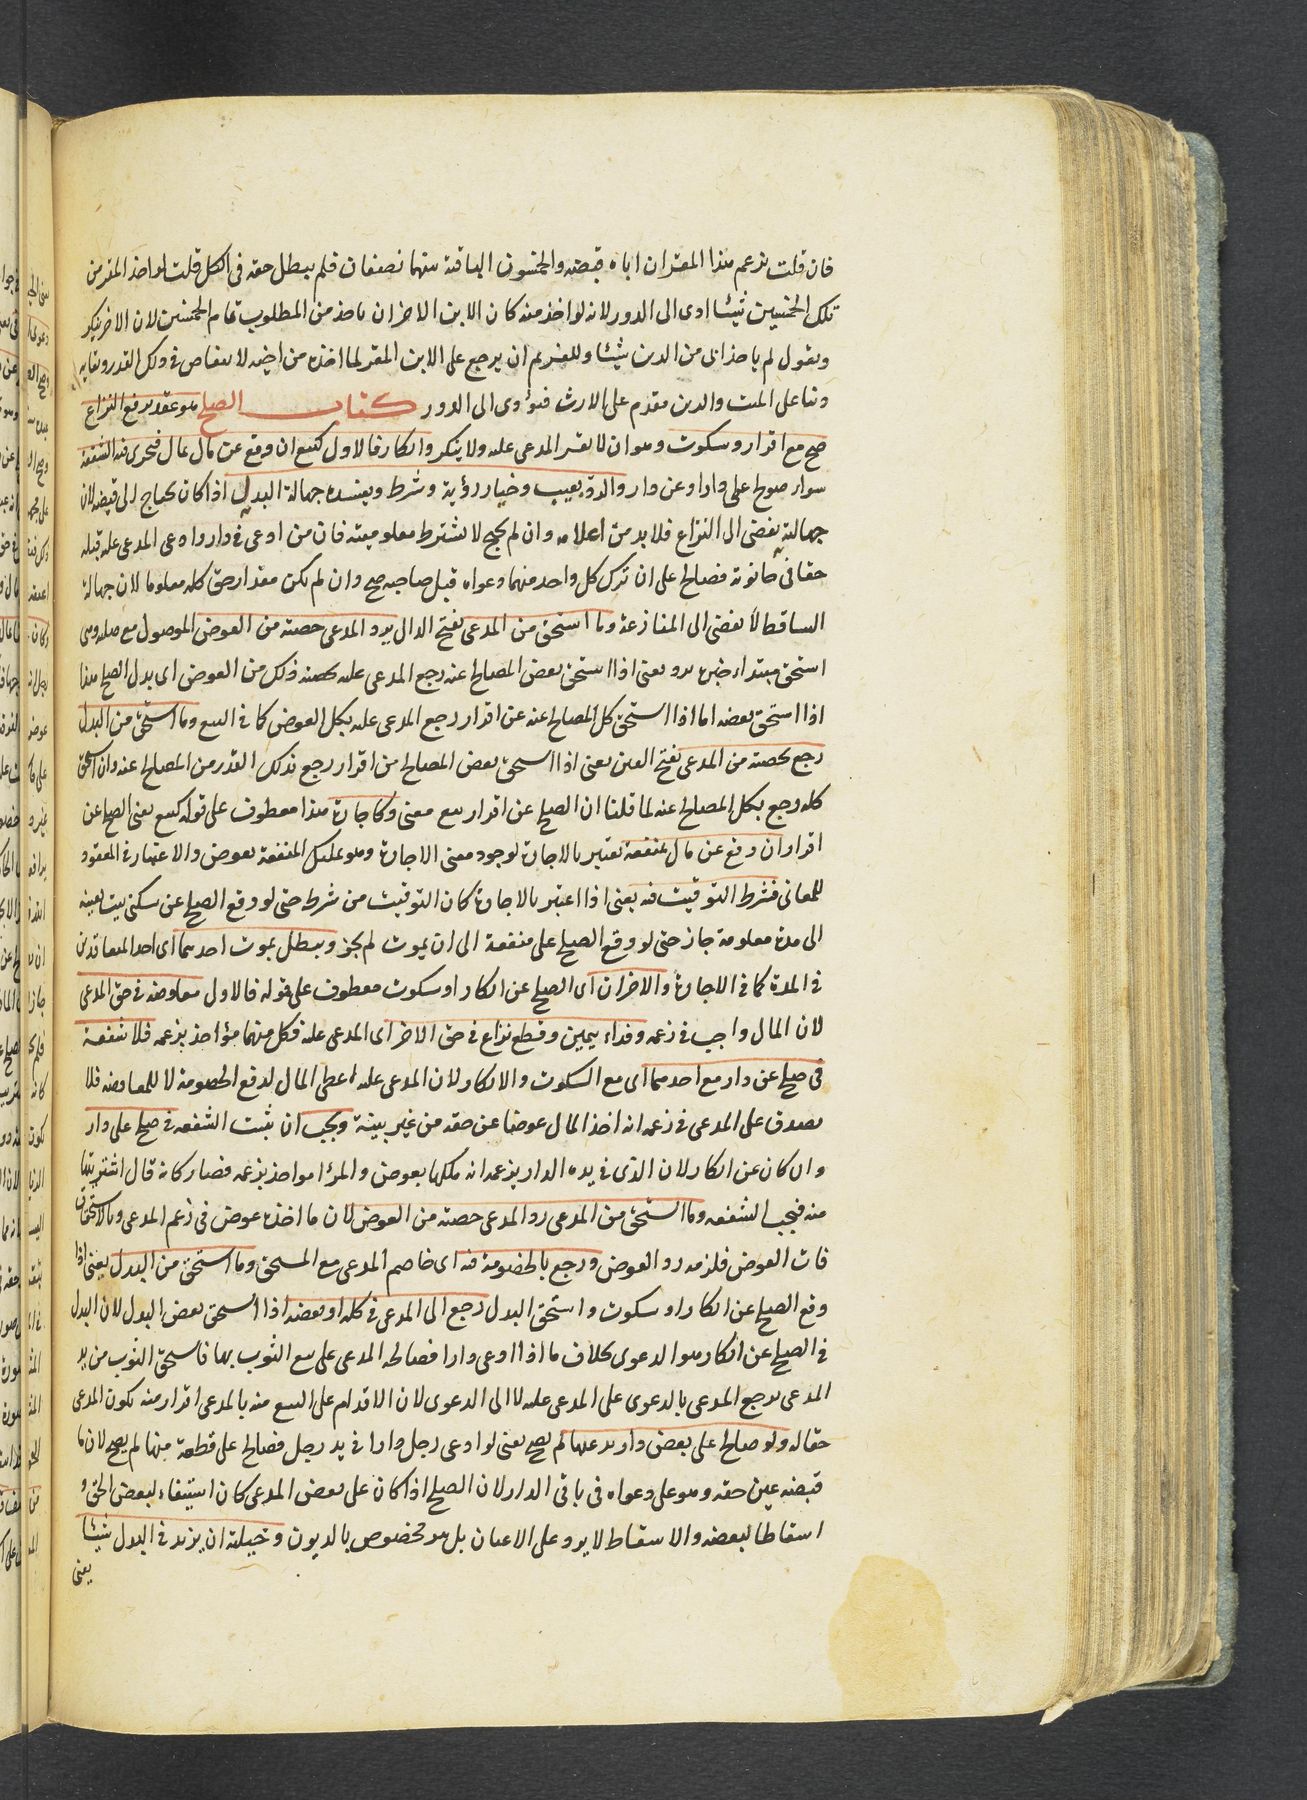 فان قلت يزعم هذا المقر ان اباه قبضه والخمسون الباقية بينهما نصفان فلم يبطل حقه في الكل قلت لو اخذ المقر من
تلك الخمسين شيئا ادى الى الدور لانه لو اخذ منه كان الابن الاخر ان ياخذ من المطلوب تمام الخمسين لان الاخر ينكر
ويقول لم ياخذ ابي من الدين شيئا وللغريم ان يرجع على الابن المقر لما اخذه من اخيه لا يتقاص في ذلك القدر وبقايه
دينا على الميت والدين مقدم على الارث فيؤدى الى الدور كتاب الصلح هو عقد يرفع النزاع
صح مع اقرار وسكوت وهو ان لا يقر المدعى عليه ولا ينكر وانكار فالاول كبيع ان وقع عن مال بمال فتجرى فيه الشفعة
سواء صولح على دار او عن دار والرد بعيب وخيار رؤية وشرط ويفسده جهالة البدل اذا كان يحتاج الى قبضه لان
جهالته يفضى الى النزاع فلا بد من اعلامه وان لم يحتج لا يشترط معلوميته فان من ادعى في دار وادعى المدعى عليه قبله
حقا في حانوته فصالح على ان ترك كل واحد منهما دعواه قبل صاحبه صح وان لم يكن مقدار حق كله معلوما لان جهالة
الساقط لا يفضى الى المنازعة وما استحق من المدعى بفتح الدال يرد المدعى حصته من العوض الموصول مع صلته وهى
استحق مبتداء خبره يرد يعنى اذا استحق بعض المصالح عنه رجع المدعى عليه بحصته ذلك من العوض اى بدل الصلح هذا
اذا استحق بعضه اما اذا استحق كل المصالح عنه عن اقرار رجع المدعى عليه بكل العوض كما في البيع وما استحق من البدل
رجع بحصته من المدعى بفتح العين يعنى اذا استحق بعض المصالح من اقرار رجع بذلك القدر من المصالح عنه وان استحق
كله رجع بكل المصالح عنه لما قلنا ان الصلح عن اقرار بيع معنى وكاجارة هذا معطوف على قوله كبيع يعنى الصلح عن
اقرار ان وقع عن مال بمنفعة يعتبر بالاجارة لوجود معنى الاجارة وهو تمليك المنفعة بعوض والاعتبار في العقود
للمعانى فشرط التوقيت فيه يعنى اذا اعتبر بالاجارة كان التوقيت من شرطه حتى لو وقع الصلح عن سكنى بيت بعينه
الى مدة معلومة جاز حتى لو وقع الصلح على منفعة الى ان يموت لم يجز ويبطل بموت احدهما اى احد المتعاقدين
في المدة كما في الاجارة والاخران اى الصلح عن انكار او سكوت معطوف على قوله فالاول معاوضة في حق المدعى
لان المال واجب في زعمه وفداء يمين وقطع نزاع في حق الاخر اى المدعى عليه فكل منهما مؤاخذ بزعمه فلا شفعة
في صلح عن دار مع احدهما اى مع السكوت والانكار لان المدعى عليه اعطى المال لدفع الخصومة لا للمعاوضة فلا
يصدق على المدعى في زعمه انه اخذ المال عوضا عن حقه من غير بينة ويجب ان ثبت الشفعة في صلح على دار
وان كان عن انكار لان الذى في يده الدار يزعم انه ملكها بعوض والمرأ مواخذ بزعمه فصار كانه قال اشتريتها
منه فيجب الشفعة وما استحق من المدعى رد المدعى حصته من العوض لان ما اخذه عوض في زعم المدعى وبالاستحقاق
فات العوض فلزمه رد العوض ورجع بالخصومة فيه اى خاصم المدعى مع المستحق وما استحق من البدل يعنى اذا
وقع الصلح عن انكار او سكوت واستحق البدل رجع الى المدعى في كله او بعضه اذا استحق بعض البدل لان البدل
في الصلح عن انكار هو الدعوى بخلاف ما اذا ادعى دارا فصالحه المدعى على بيع الثوب بها فاستحق الثوب من يد
المدعى يرجع المدعى بالدعوى على المدعى عليه لا الى الدعوى لان الاقدام على البيع منه بالمدعى اقرار منه بكون المدعى
حقا له ولو صالح على بعض دار يدعيها لم يصح يعنى لو ادعى رجل دارا في يد رجل فصالح على قطعة منها لم يصح لان ما
قبضه عين حقه وهو على دعواه في باقى الدار لان الصلح اذا كان على بعض المدعى كان استيفاء لبعض الحق و
اسقاطا لبعضه والاسقاط لا يرد على الاعيان بل هو مخصوص بالديون وحيلته ان يزيد في البدل شيئا
يعنى